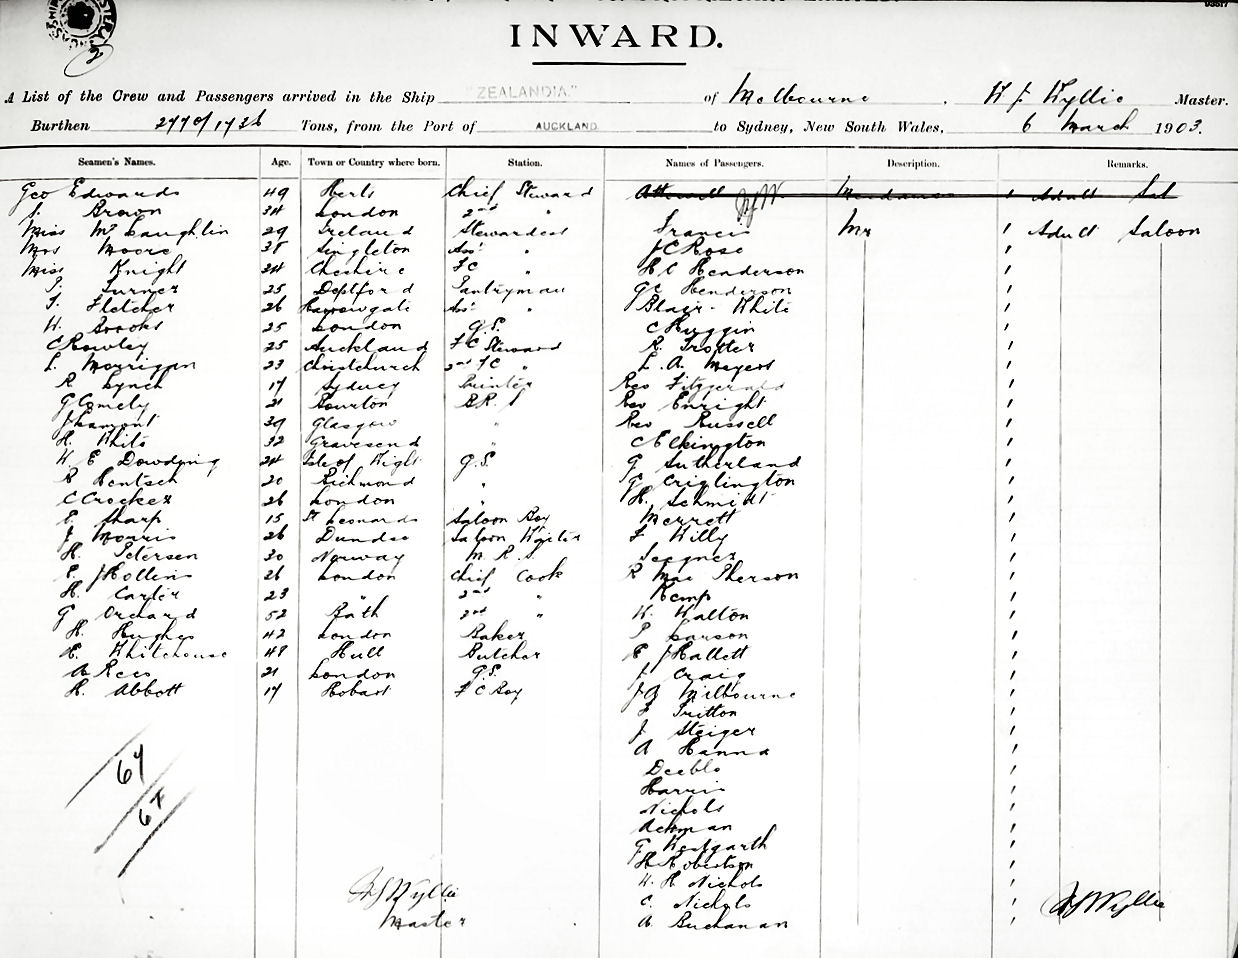 2
INWARD.
A List of the Crew and Passengers arrived in the Ship "ZEALANDIA." of Melbourne, W J Wyllie Master.
Burthen 2770/1726 Tons, from the Port of AUCKLAND to Sydney, New South Wales, 6 March 1903.
Seamen's Names. Age. Town or Country where born. Station. Names of Passengers. Description. Remarks.
Geo Edwards 49 Herts Chief Steward Mesdames 1 Adult Sal
Brown 34 London 2nd "
Miss McLaughlin 29 Ireland Stewardess Francis Mr 1 Adult Saloon
Mrs Moore 38 Singleton Asst " J C Rose 1
Miss Knight 24 Cheshire FC " H C Henderson 1
Turner 25 Deptford Pantryman Henderson 1
Fletcher 26 Harrowgate Asst " Blair-White 1
W. Brooks 25 London G.S. C Huggin 1
C Rowley 25 Auckland FC Steward R. Trotter 1
L. Morrigan 23 Christchurch 2nd FC " L. A. Meyers 1
R Lynch 17 Sydney Printer Rev Fitzgerald 1
G Comely 21 Bourton B.R.S Rev Enright 1
J Lamont 39 Glasgow " Rev Russell 1
H. White 32 Gravesend " C Elkington 1
W E Dowding 24 Isle of Wight G.S. G Sutherland 1
R Hentsch 20 Richmond " G Criglington 1
C Crocker 26 London " H. Schmidt 1
E. Sharp 15 St Leonards Saloon Boy Merrett 1
J Morris 26 Dundee Saloon Waiter F Willy 1
H. Petersen 30 Norway M.R.S. Seegner 1
E. J Hollins 26 London Chief Cook R MacPherson 1
H. Carter 23 " 2nd " Kemp 1
G Orchard 52 Bath 2nd " W. Walton 1
H. Hughes 42 London Baker P Larson 1
E. Whitehouse 48 Hull Butcher E J Hallett 1
A Rees 21 London G.S. J Craig 1
R. Abbott 17 Hobart FC Boy J A Milbourne 1
F Tritton 1
J Steiger 1
A Hanna 1
Deeble 1
Harris 1
Nichols 1
Acman 1
F Westgarth 1
H Robertson 1
W. H Nichols 1
C. Nichols 1
A Buchanan 1
67
67
W J Wyllie
Master
W J Wyllie